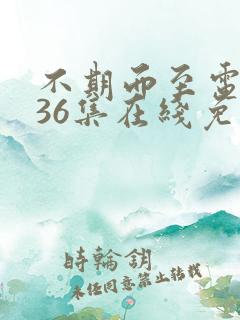 不期而至電
36集在綫免
時輪鎖
未经同意禁止转载